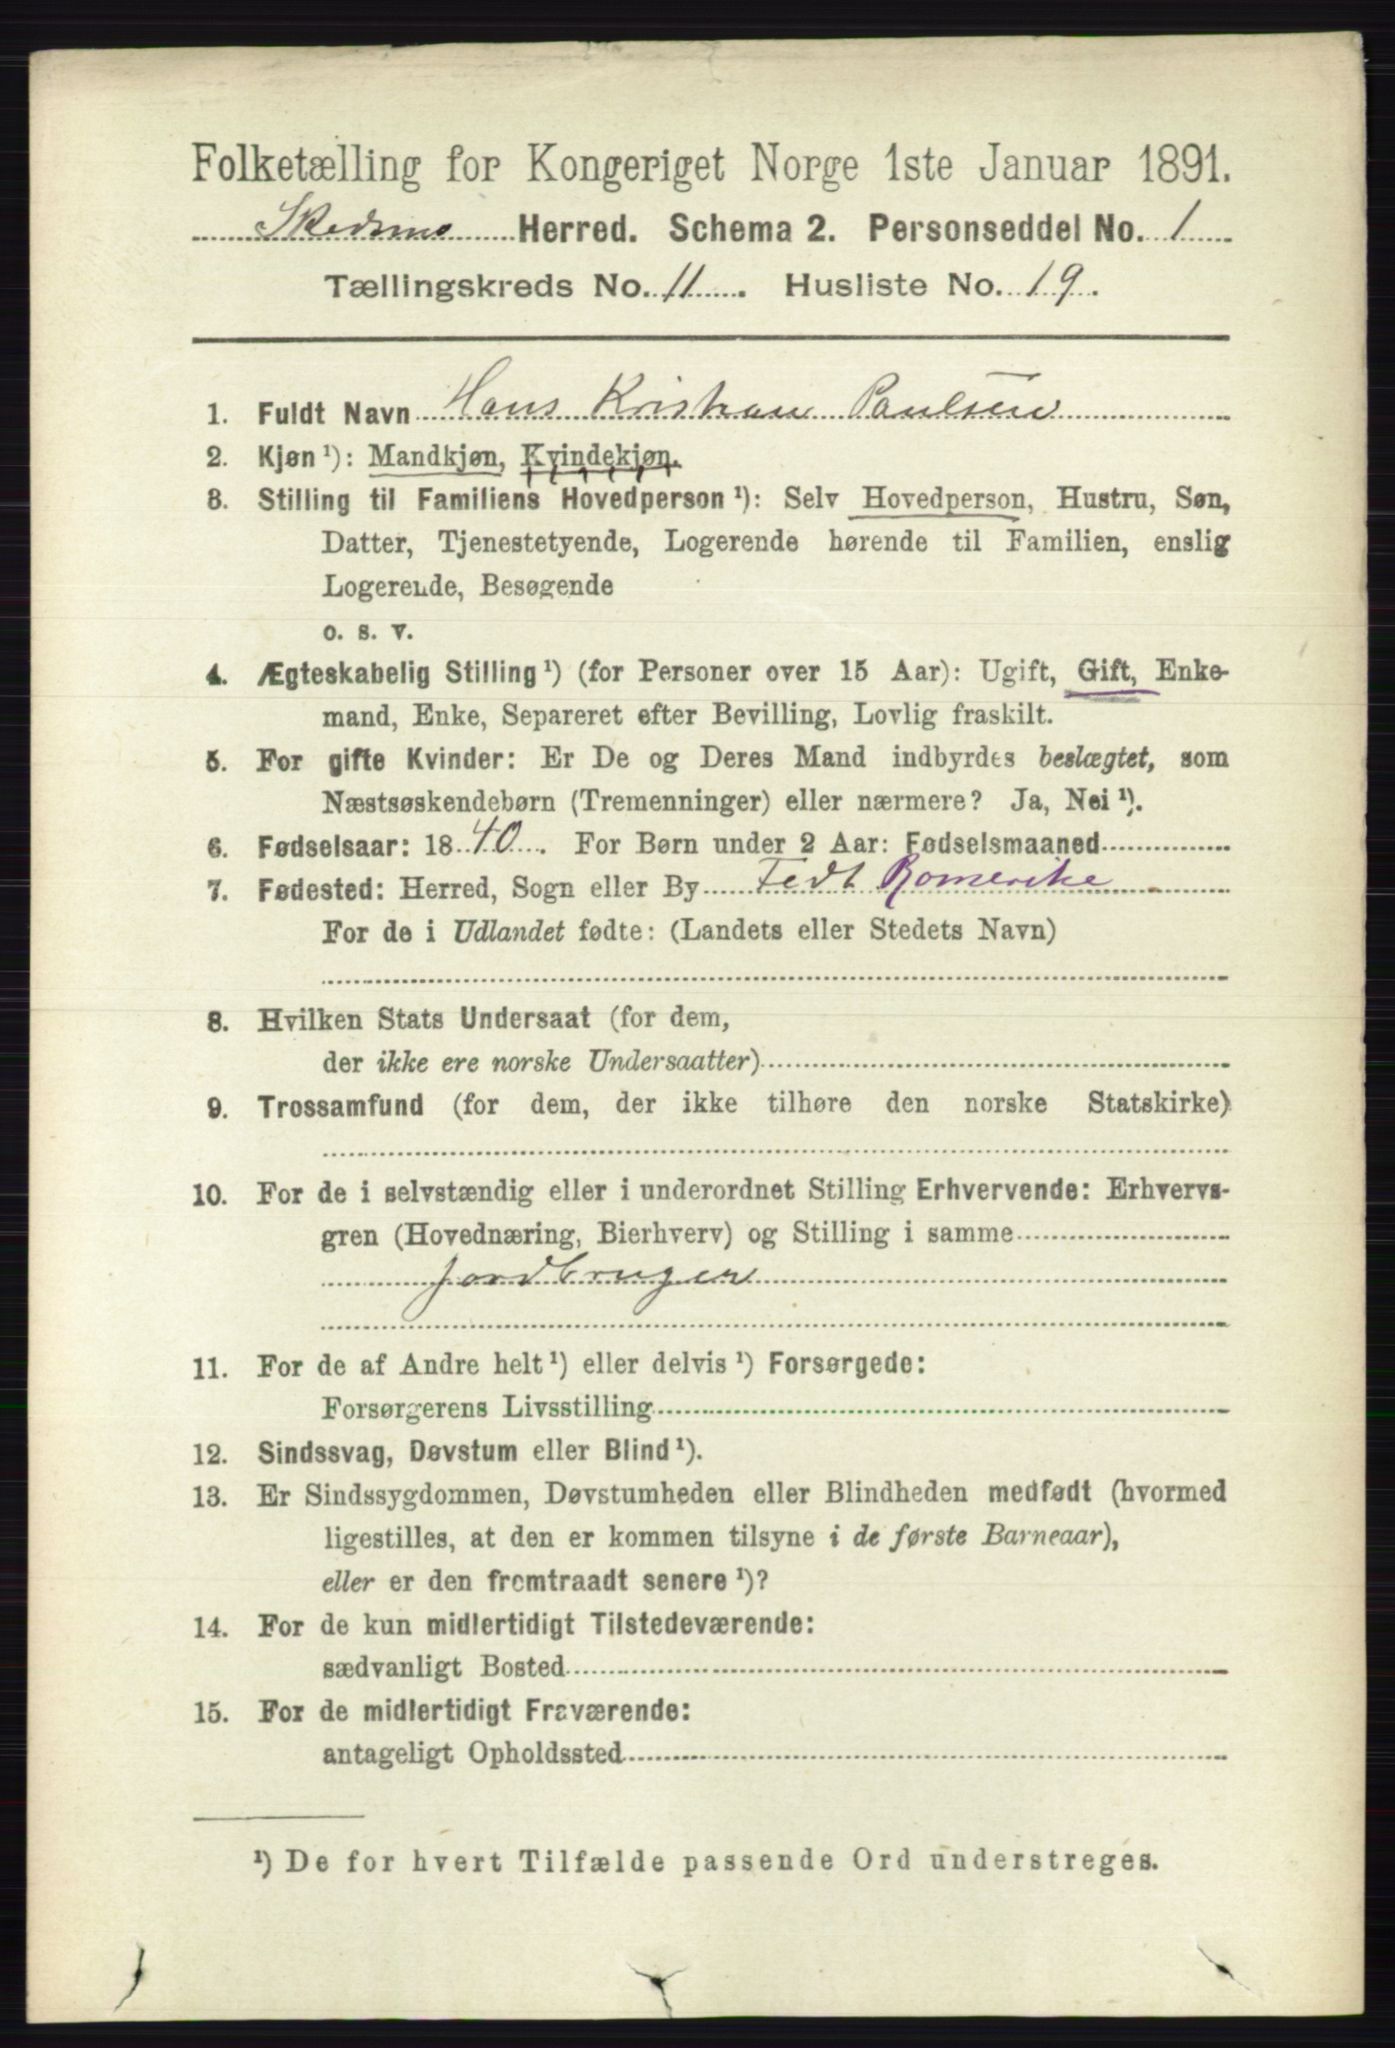 Folketælling for Kongeriget Norge 1ste Januar 1891.
Skedsmo Herred. Schema 2. Personseddel No. 1
Tællingskreds No. 11. Husliste No. 19.
1. Fuldt Navn Hans Kristian Paulsen
2. Kjøn ¹): Mandkjøn, Kvindekjøn.
3. Stilling til Familiens Hovedperson ¹): Selv Hovedperson, Hustru, Søn,
Datter, Tjenestetyende, Logerende hørende til Familien, enslig
Logerende, Besøgende
o. s. v.
4. Ægteskabelig Stilling ¹) (for Personer over 15 Aar): Ugift, Gift, Enke-
mand, Enke, Separeret efter Bevilling, Lovlig fraskilt.
5. For gifte Kvinder: Er De og Deres Mand indbyrdes beslægtet, som
Næstsøskendebørn (Tremenninger) eller nærmere? Ja, Nei ¹).
6. Fødselsaar: 1840. For Børn under 2 Aar: Fødselsmaaned
7. Fødested: Herred, Sogn eller By Fedt Romerike
For de i Udlandet fødte: (Landets eller Stedets Navn)
8. Hvilken Stats Undersaat (for dem,
der ikke ere norske Undersaatter)
9. Trossamfund (for dem, der ikke tilhøre den norske Statskirke)
10. For de i selvstændig eller i underordnet Stilling Erhvervende: Erhvervs-
gren (Hovednæring, Bierhverv) og Stilling i samme
Jordbruger
11. For de af Andre helt ¹) eller delvis ¹) Forsørgede:
Forsørgerens Livsstilling
12. Sindssvag, Døvstum eller Blind ¹).
13. Er Sindssygdommen, Døvstumheden eller Blindheden medfødt (hvormed
ligestilles, at den er kommen tilsyne i de første Barneaar),
eller er den fremtraadt senere ¹)?
14. For de kun midlertidigt Tilstedeværende:
sædvanligt Bosted
15. For de midlertidigt Fraværende:
antageligt Opholdssted
¹) De for hvert Tilfælde passende Ord understreges.